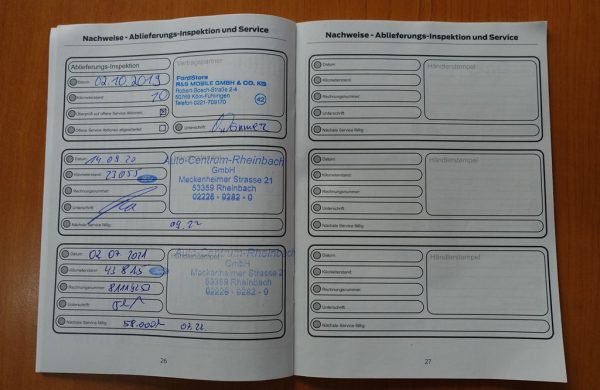 Nachweise - Ablieferungs-Inspektion und Service
Ablieferungs-Inspektion
Vertragspartner
Datum: 02.10.2019
FordStore
R&S MOBILE GMBH & CO. KG
Robert-Bosch-Straße 2-4
50769 Köln-Fühlingen
Telefon 0221-709170
42
Kilometerstand: 10
Überprüft auf offene Service Aktionen:
Offene Service Aktionen abgearbeitet:
Unterschrift:
Datum: 14.09.20
Auto-Centrum-Rheinbach
GmbH
Meckenheimer Strasse 21
53359 Rheinbach
02226 - 9282 - 0
Kilometerstand: 23055
Rechnungsnummer:
Unterschrift:
Nächste Service fällig: 09.22
Datum: 02 07 2021
Händlerstempel
Auto-Centrum-Rheinbach
GmbH
Meckenheimer Strasse 2
53359 Rheinbach
02226 - 9282 - 0
Kilometerstand: 43815
Rechnungsnummer:
Unterschrift:
Nächste Service fällig: 07.22
26
Nachweise - Ablieferungs-Inspektion und Service
Datum:
Händlerstempel
Kilometerstand:
Rechnungsnummer:
Unterschrift:
Nächste Service fällig:
Datum:
Händlerstempel
Kilometerstand:
Rechnungsnummer:
Unterschrift:
Nächste Service fällig:
Datum:
Händlerstempel
Kilometerstand:
Rechnungsnummer:
Unterschrift:
Nächste Service fällig:
27